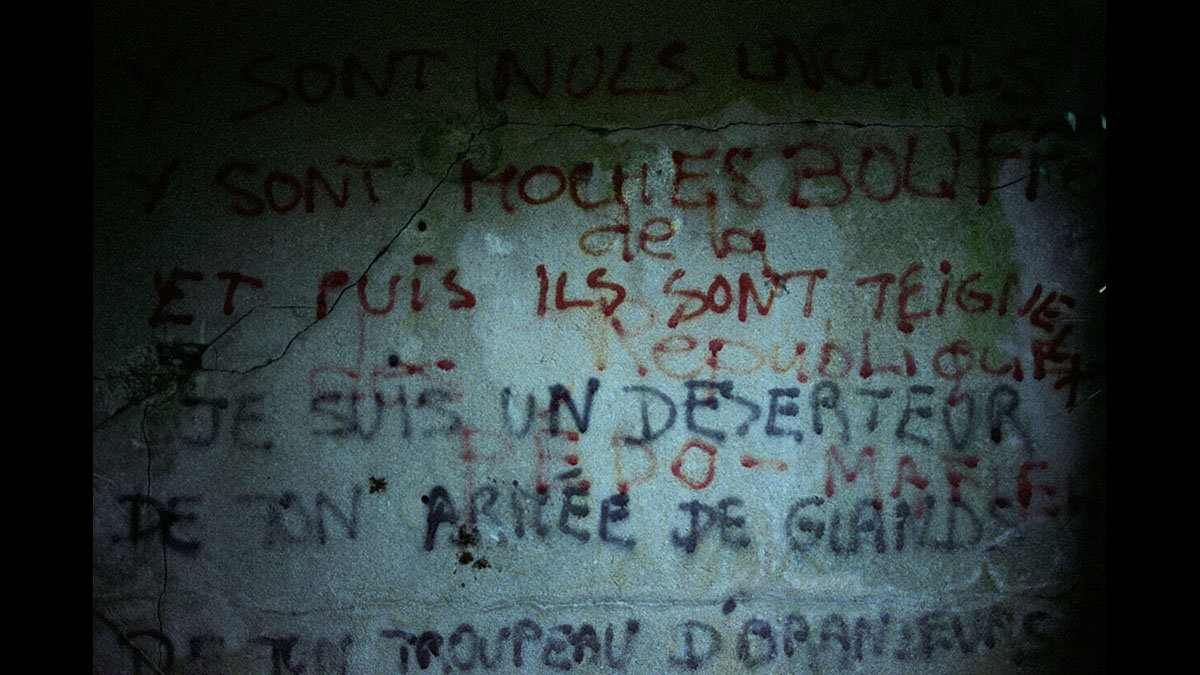 Y SONT NULS
Y SONT MOCHES BOUFFE
de la
ET PUIS ILS SONT
Republique
JE SUIS UN DESERTEUR
PEDO -
DE TON ARMÉE DE GLANDS
DE TON TROUPEAU D'BRANLEURS